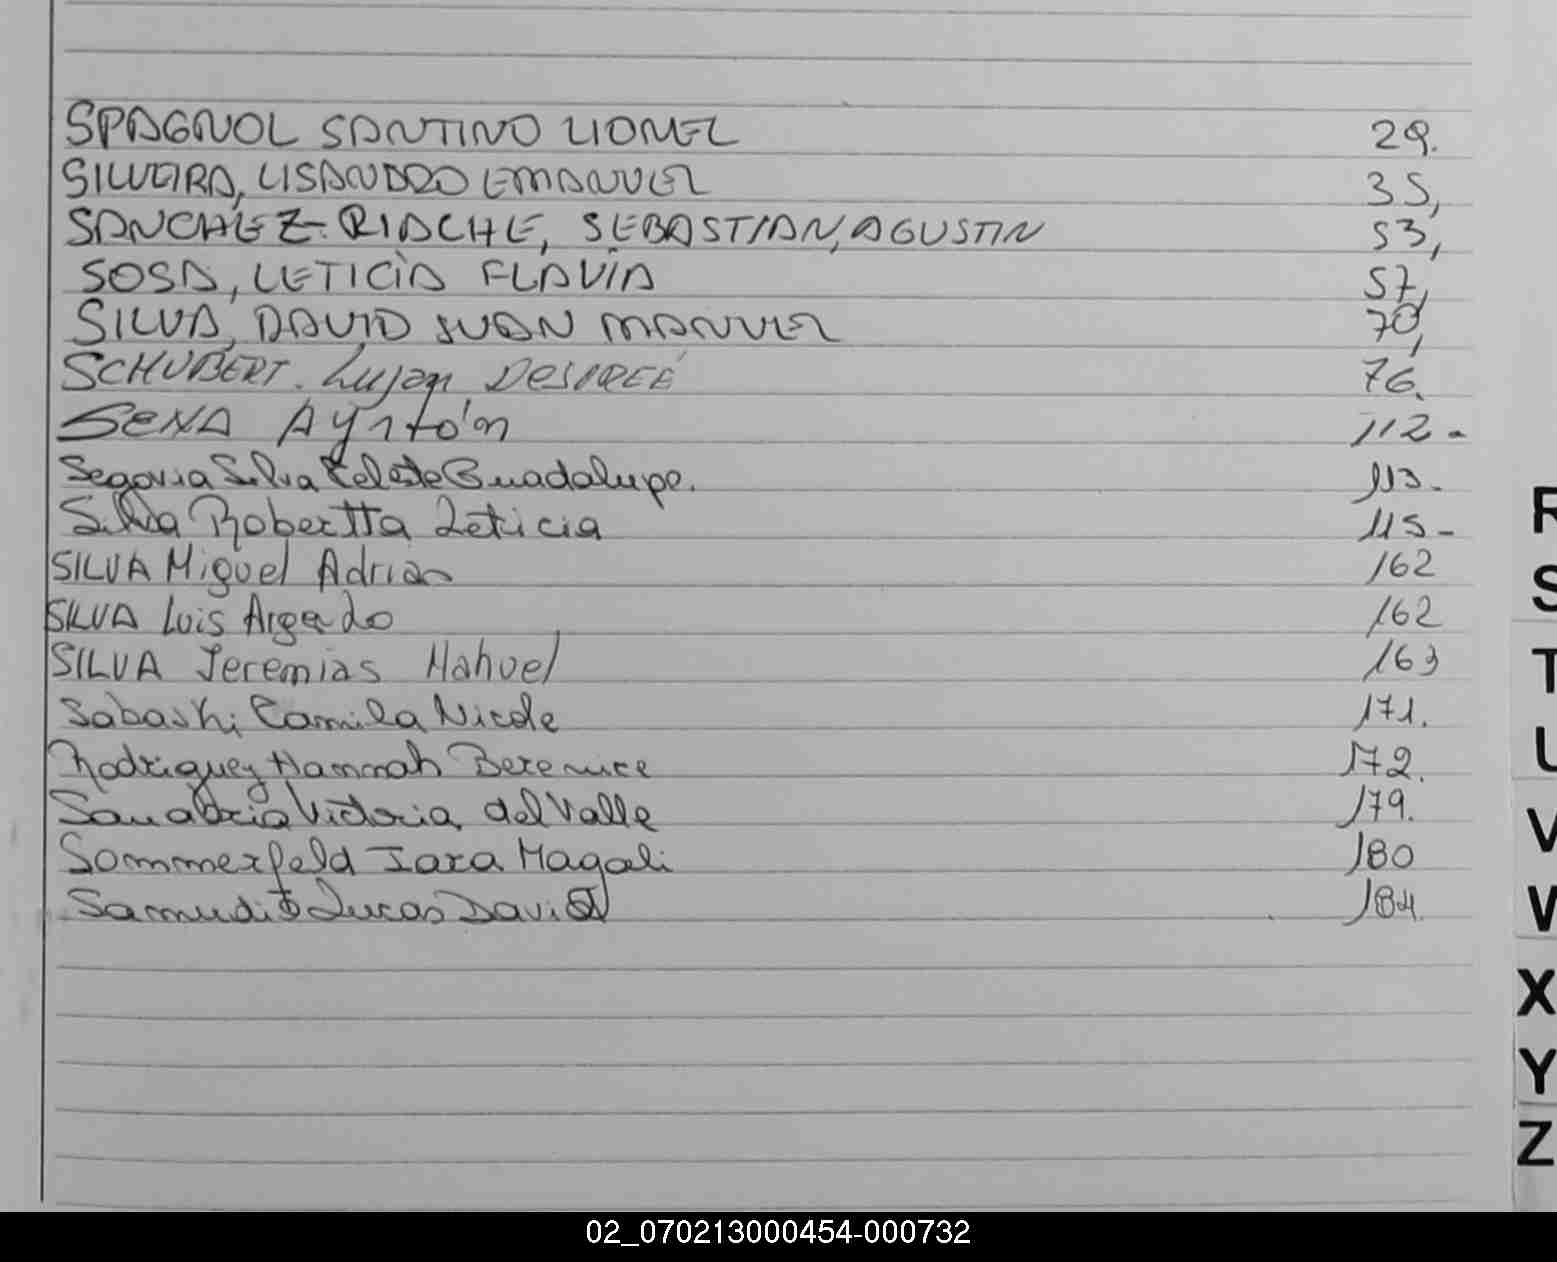 SPAGNOL SANTINO LIONEL 29.
SILVEIRA, LISANDRO EMANUEL 35,
SANCHEZ-RIACHE, SEBASTIAN, AGUSTIN 53,
SOSA, LETICIA FLAVIA 57,
SILVA, DAVID JUAN MANUEL 70,
SCHUBERT. Lujan DESIREÉ 76.
SENA Ayrtón 112-
Segovia Silva Celeste Guadalupe. 113.
Silva Robertta Leticia 115-
SILVA Miguel Adrian 162
SILVA Luis Argendo 162
SILVA Jeremias Nahuel 163
Sabashi Camila Nicole 171.
Rodriguez Hannah Berenice 172.
Sanabria Victoria del Valle 179.
Sommerfeld Iara Magali 180
Samudio Lucas David 184.
R
S
T
U
V
W
X
Y
Z
02_070213000454-000732